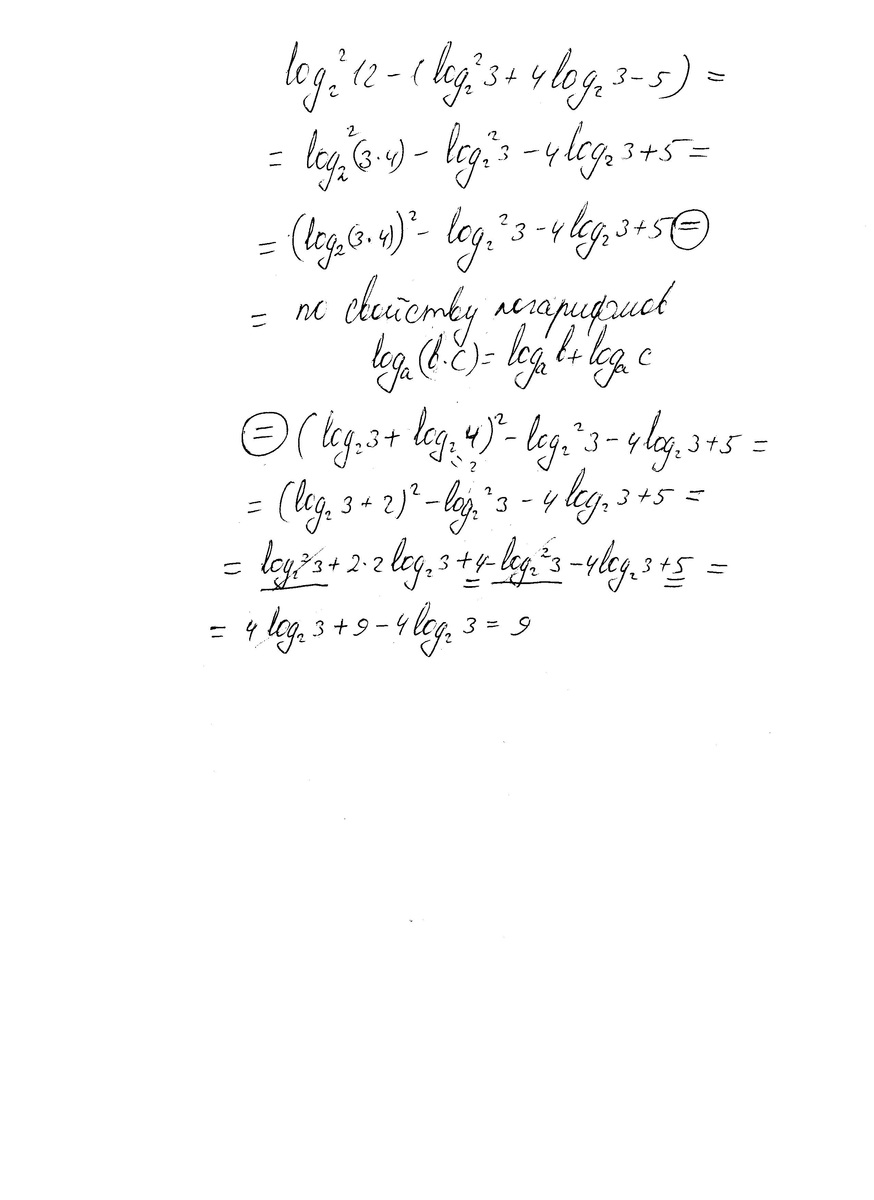 log₂²12 - (log₂²3 + 4log₂3 - 5) =
= log₂²(3·4) - log₂²3 - 4log₂3 + 5 =
= (log₂(3·4))² - log₂²3 - 4log₂3 + 5 =
= по свойству логарифмов
logₐ(b·c) = logₐb + logₐc
= (log₂3 + log₂4)² - log₂²3 - 4log₂3 + 5 =
2
= (log₂3 + 2)² - log₂²3 - 4log₂3 + 5 =
= log₂²3 + 2·2log₂3 + 4 - log₂²3 - 4log₂3 + 5 =
= 4log₂3 + 9 - 4log₂3 = 9